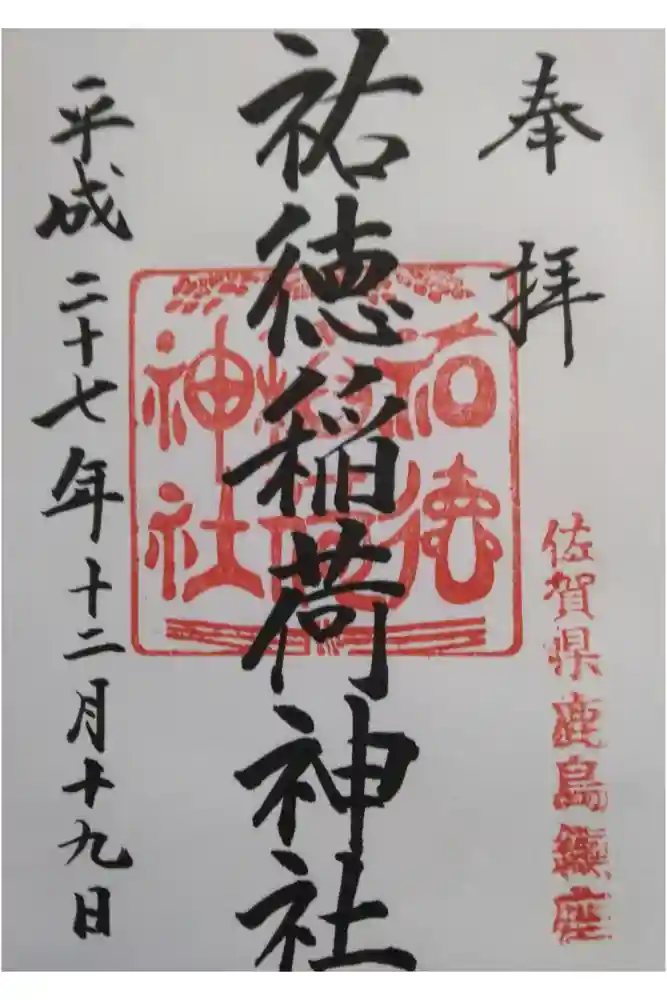 奉拝
佐賀県鹿島鎮座
祐徳稲荷神社
祐徳
神社
平成二十七年十二月十九日